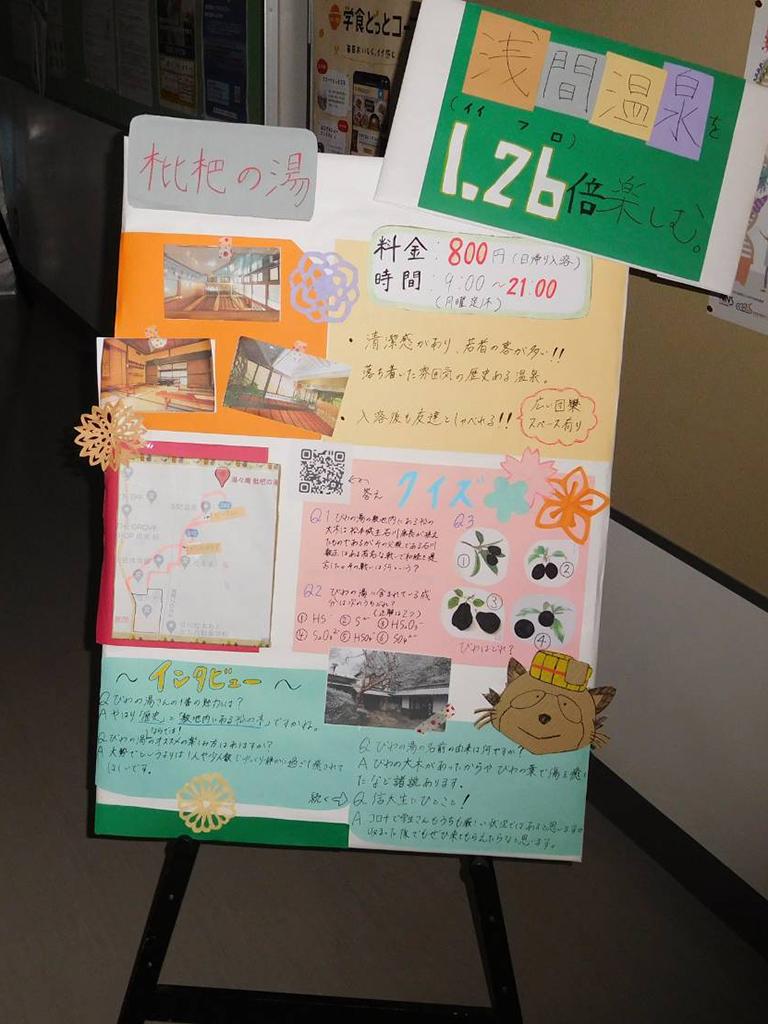 学食どっとコー
浅間温泉を
(イイ フロ)
1.26倍楽しむ。
枇杷の湯
料金:800円(日帰り入浴)
時間:9:00~21:00
(月曜定休)
・清潔感があり、若者の客が多い!!
落ち着いた雰囲気の歴史ある温泉。
・入浴後も友達としゃべれる!!
広い団欒
スペース有り
湯々庵 枇杷の湯
答え
クイズ
Q1 びわの湯の敷地内にある松の
大木は松本城主石川康長が植え
たものであるがその父親である石川
数正はある有名な戦いで和睦を提
言した。その戦いは何という?
Q2 びわの湯に含まれている成
分は次のうちどれ?
(正解は2つ)
① HS⁻ ② S²⁻ ③ HS₂O₃⁻
④ S₂O₃²⁻ ⑤ HSO₄⁻ ⑥ SO₄²⁻
Q3
①
②
③
④
びわはどれ?
~インタビュー~
Q びわの湯さんの1番の魅力は?
A やはり「歴史」と「敷地内にある松の木」ですかね。
Q びわの湯ならでは!のオススメの楽しみ方はありますか?
A 大勢でというよりは1人や少人数でゆっくり静かに過ごして癒されて
ほしいです。
続く⇨
Q びわの湯の名前の由来は何ですか?
A びわの大木があったからや びわの葉で傷を癒し
たなど諸説あります。
Q 信大生にひとこと!
A コロナで学生さんもうちも厳しい状況ではあると思いますが
収まった後でもぜひ来てもらえたらなと思います。